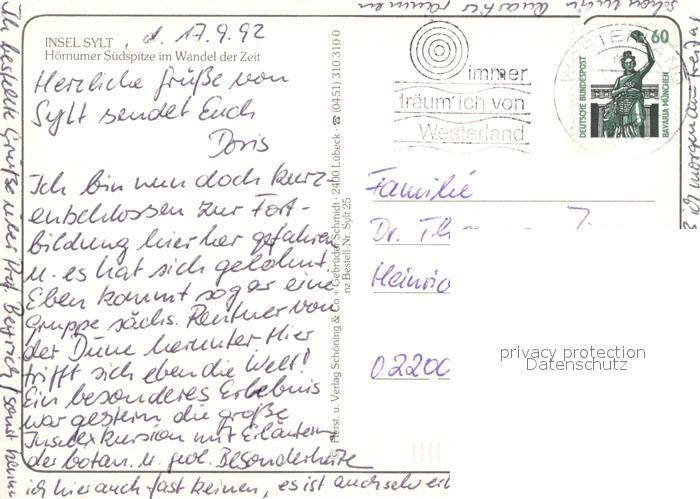 INSEL SYLT
Hörnumer Südspitze im Wandel der Zeit
d. 17.9.92
Herzliche Grüße von
Sylt sendet Euch
Doris
Ich bin nun doch kurz
entschlossen zur Fort-
bildung hierher gefahren
u. es hat sich gelohnt.
Eben kommt sogar eine
Gruppe sächs. Rentner von
der Düne herunter. Hier
trifft sich eben die Welt!
Ein besonderes Erlebnis
war gestern die große
Inselexkursion mit Erläutern
der botan. u. geol. Besonderheite
ich hier auch fast keinen, es ist auch sehr erh
Ich bestellte Grüße über Prof. Beyrich, sonst kenne
Herst. u. Verlag Schöning & Co + Gebrüder Schmidt · 2400 Lübeck · ☎ (0451) 310 310 0
nz Bestell-Nr. Sylt 25
immer
träum' ich von
Westerland
WESTERLAND
60
DEUTSCHE BUNDESPOST
BAVARIA MÜNCHEN
Familie
Dr. Th
Heinric
02200
privacy protection
Datenschutz